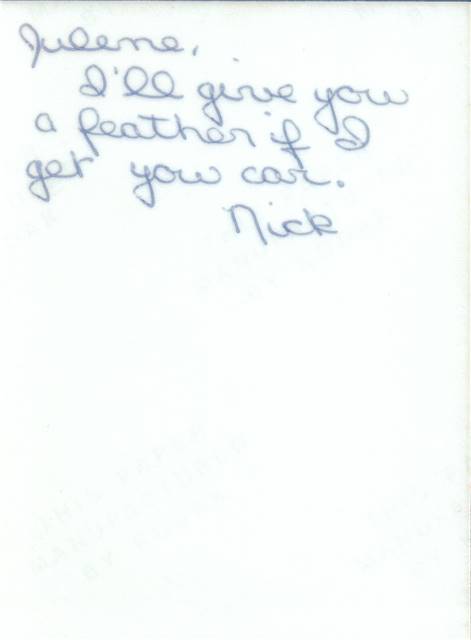 Julene,
I'll give you
a feather if I
get you car.
Nick
THIS PAPER
MANUFACTURED
BY KODAK